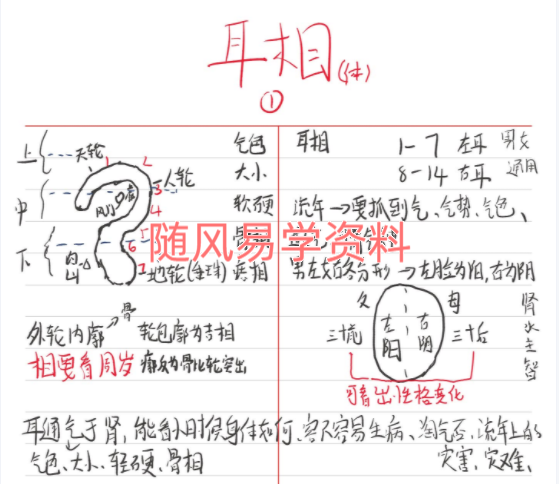 耳相(体)
①
上 天轮 1 2 气色
人轮 大小
中 风门 3 4 软硬
随风易学资料
下 内 5 6 7 地轮(垂珠) 疾相
骨
外轮内廓 轮包廓为吉相
相要看周岁 廓反为骨比轮突出
耳相 1-7 左耳 男女
8-14 右耳 通用
流年→要抓到气、气势、气色、
男左女右各分形→左脸为阳,右为阴
父 母
三十前 左阳 右阴 三十后
肾水主智
可看出性格变化
耳通气于肾,能看小时候身体如何、容不容易生病、淘气否、流年上的
气色、大小、轻硬、骨相 灾害、灾难、